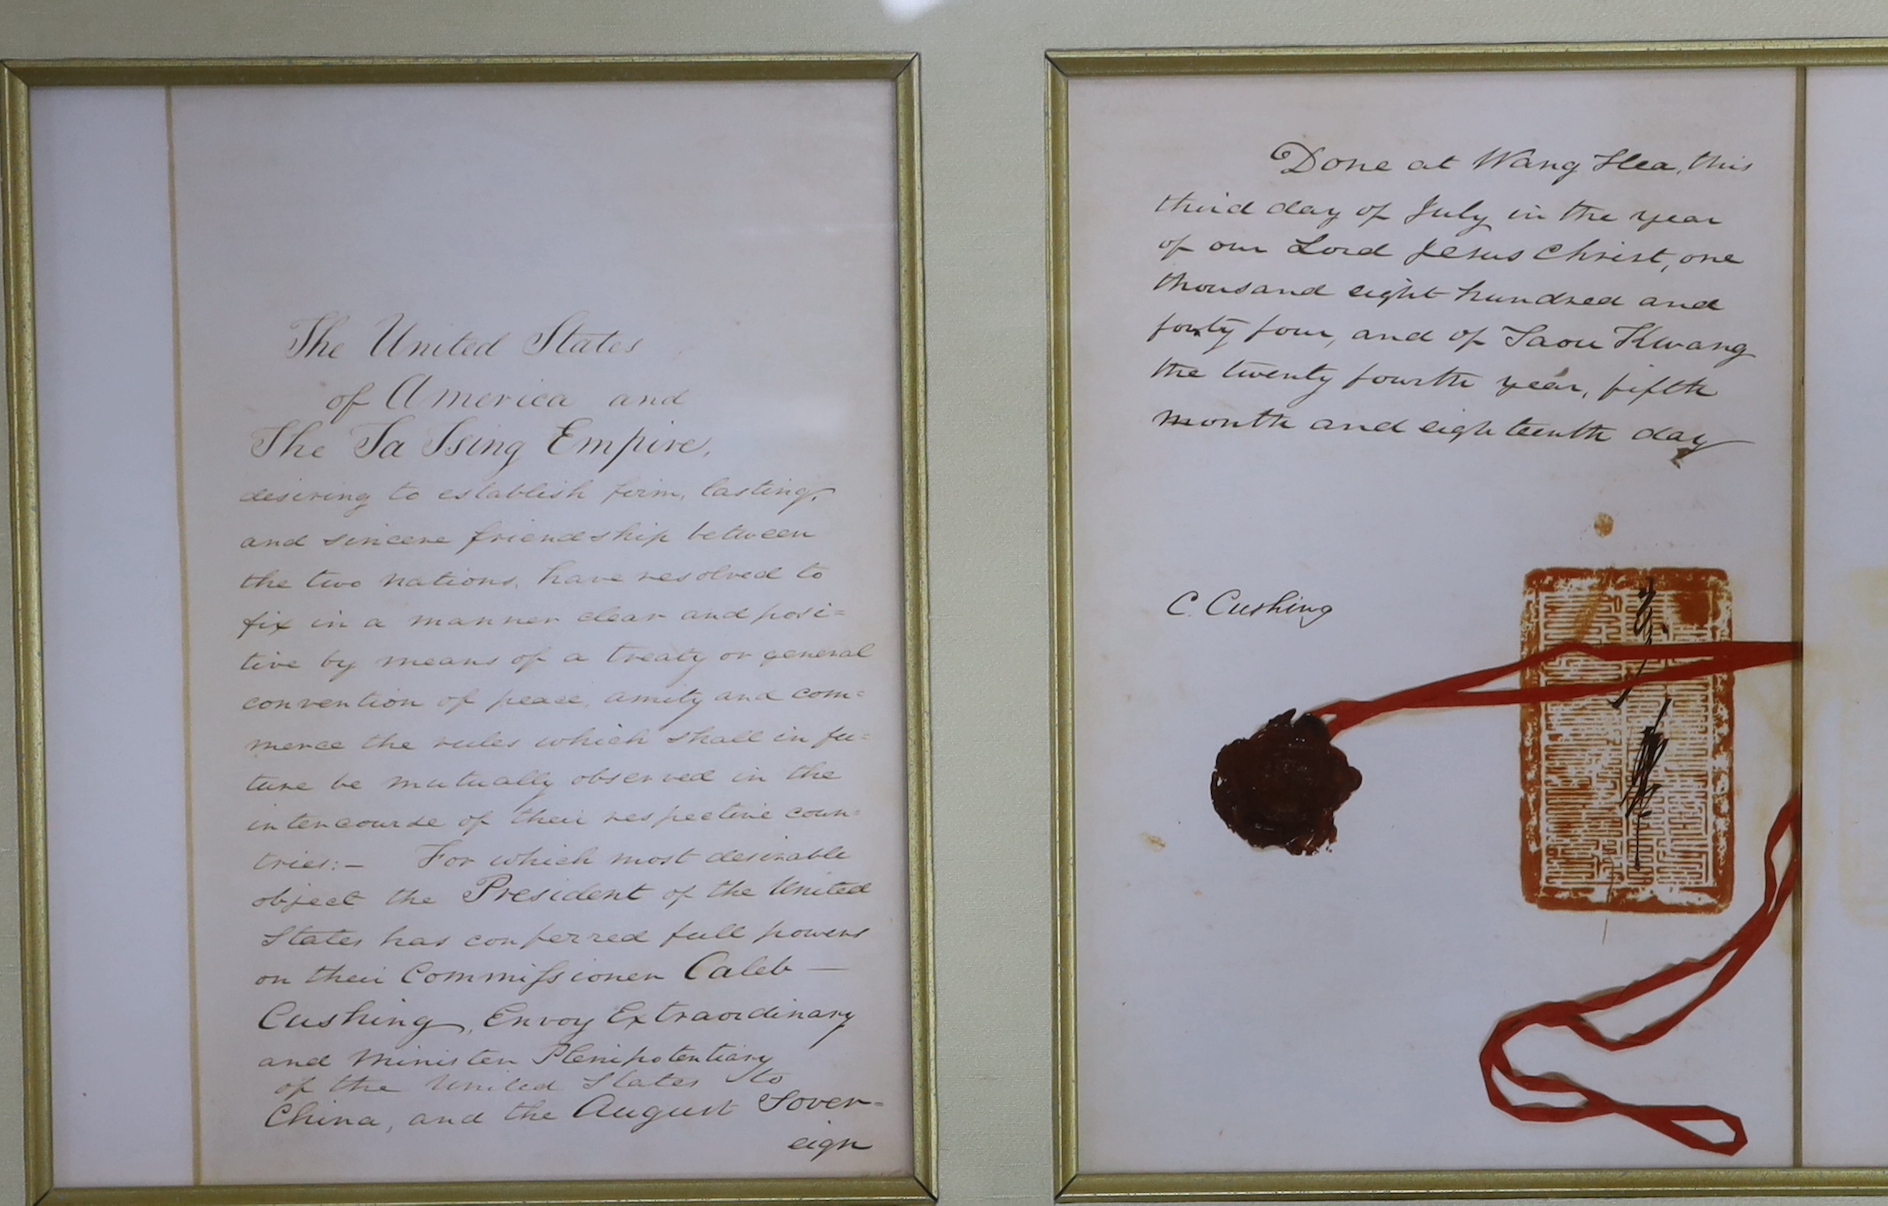 The United States
of America and
The Ta Tsing Empire,
desiring to establish firm, lasting,
and sincere friendship between
the two nations, have resolved to
fix in a manner clear and posi=
tive by means of a treaty or general
convention of peace, amity and com=
merce the rules which shall in fu=
ture be mutually observed in the
intercourse of their respective coun=
tries:— For which most desirable
object the President of the United
States has conferred full powers
on their Commissioner Caleb —
Cushing, Envoy Extraordinary
and Minister Plenipotentiary
of the United States to
China, and the August Sover=
eign
Done at Wang Hea, this
third day of July in the year
of our Lord Jesus Christ, one
thousand eight hundred and
forty four, and of Taou Kwang
the twenty fourth year, fifth
month and eighteenth day
C. Cushing